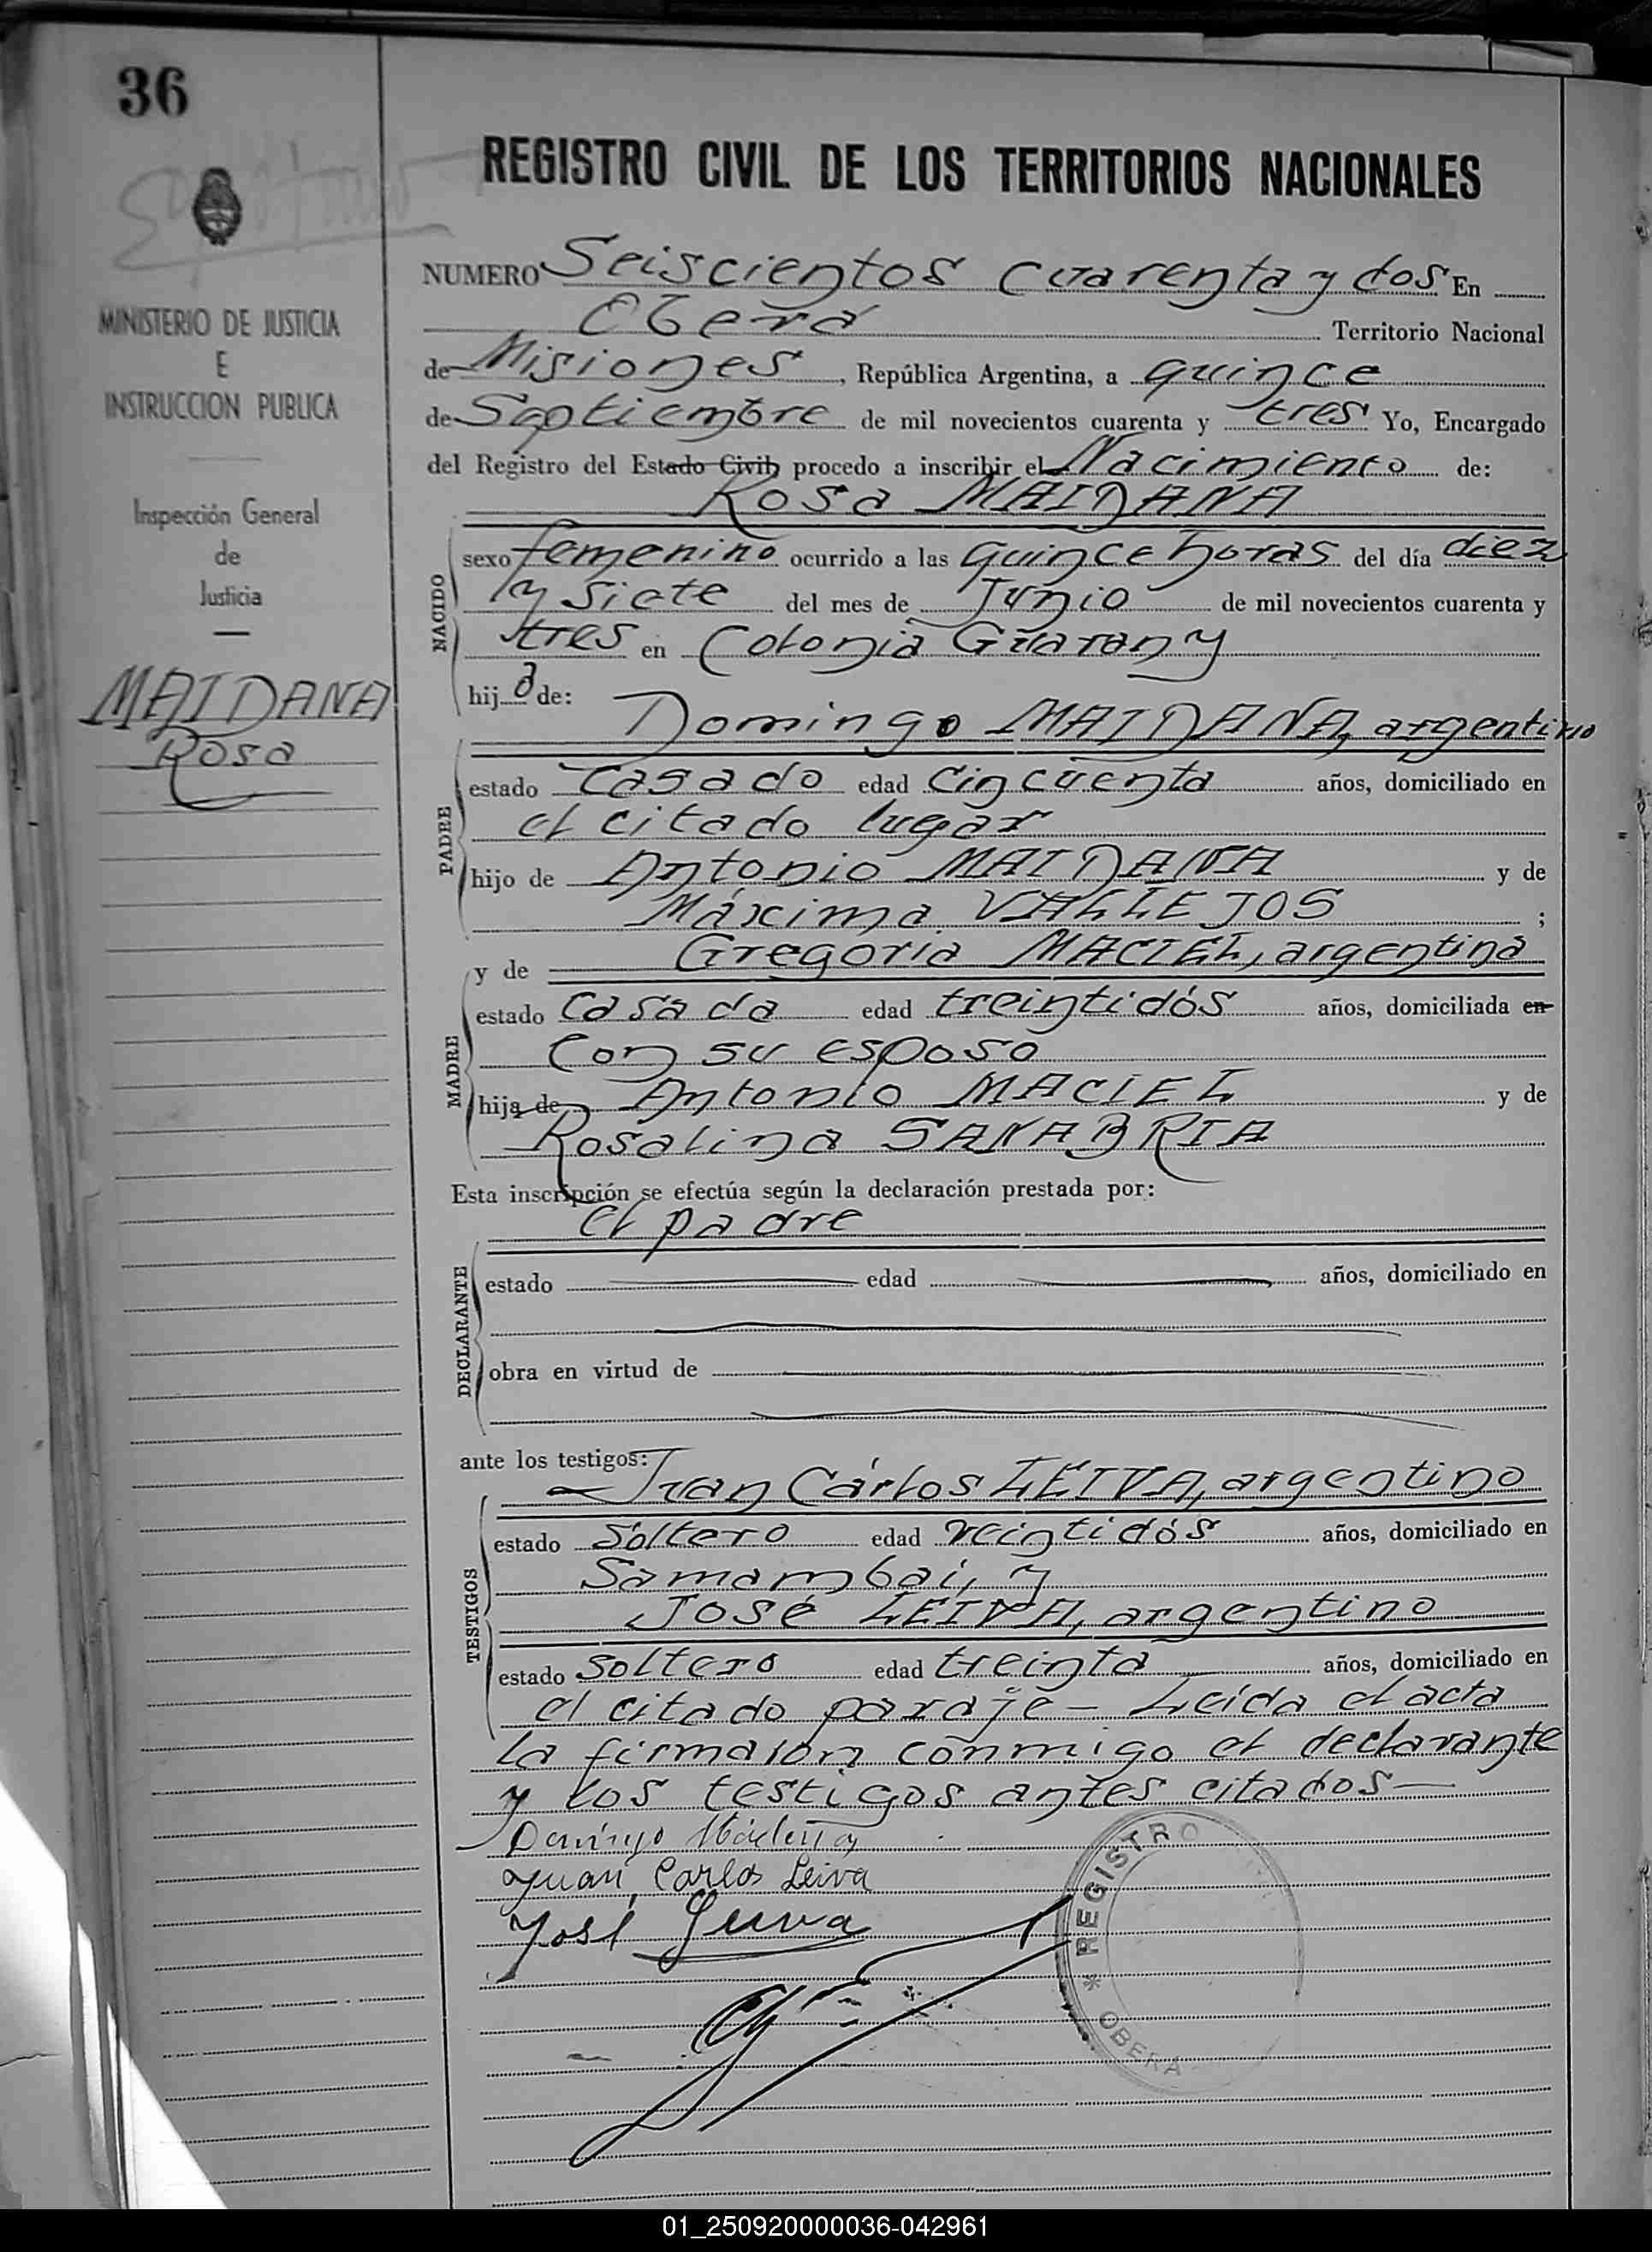 36
REGISTRO CIVIL DE LOS TERRITORIOS NACIONALES
MINISTERIO DE JUSTICIA
E
INSTRUCCION PUBLICA
Inspección General
de
Justicia
MAIDANA
Rosa
NUMERO Seiscientos cuarenta y dos En
Oberá Territorio Nacional
de Misiones, República Argentina, a quince
de Septiembre de mil novecientos cuarenta y tres Yo, Encargado
del Registro del Estado Civil, procedo a inscribir el Nacimiento de:
Rosa MAIDANA
NACIDO
sexo femenino ocurrido a las quince horas del día diez
y siete del mes de Junio de mil novecientos cuarenta y
tres en Colonia Guarany
hija de:
Domingo MAIDANA, argentino
PADRE
estado casado edad cincuenta años, domiciliado en
el citado lugar
hijo de Antonio MAIDANA y de
Máxima VALLEJOS ;
y de Gregoria MACIEL, argentina
MADRE
estado casada edad treintidós años, domiciliada en
con su esposo
hija de Antonio MACIEL y de
Rosalina SANABRIA
Esta inscripción se efectúa según la declaración prestada por:
el padre
DECLARANTE
estado edad años, domiciliado en
obra en virtud de
ante los testigos:
Juan Cárlos LEIVA, argentino
TESTIGOS
estado sóltero edad veintidós años, domiciliado en
Samambai, y
José LEIVA, argentino
estado soltero edad treinta años, domiciliado en
el citado paraje - Leída el acta
la firmaron conmigo el declarante
y los testigos antes citados
Domingo Maidana
Juan Carlos Leiva
José Leiva
* REGISTRO
OBERÁ
01_250920000036-042961